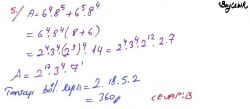 Soylemir
5/ A=6⁴.8⁵+6⁵.8⁴
=6⁴.8⁴(8+6)
=2⁴3⁴.(2³)⁴.14=2⁴3⁴.2¹².2.7
A=2¹⁷3⁴.7¹
Tamsayı böl. sayısı=2.18.5.2
=360//
CEVAP:B